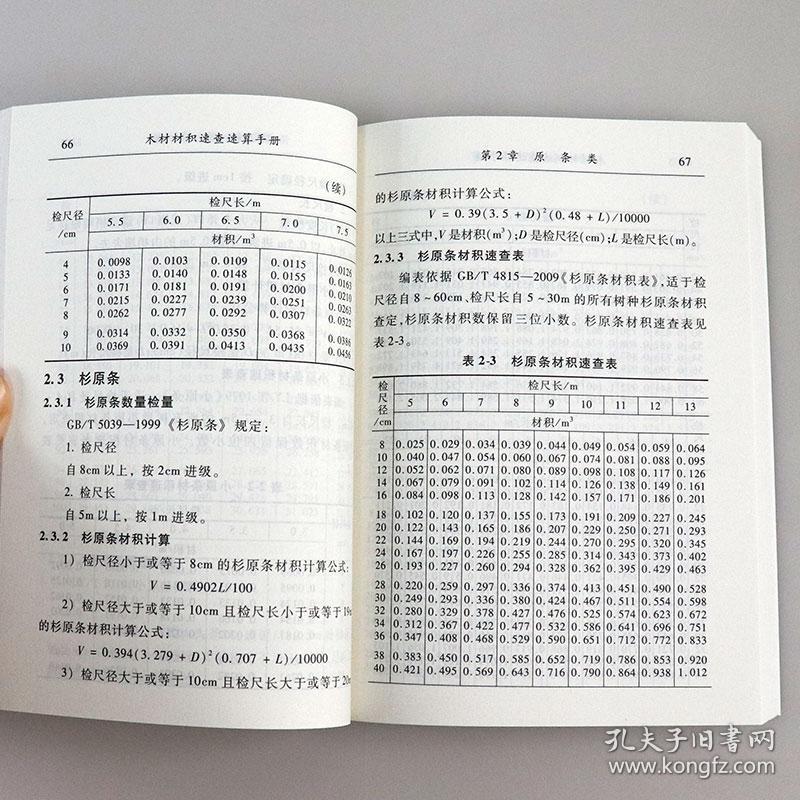 66 木材材积速查速算手册
(续)
检尺径/cm 检尺长/m
5.5 6.0 6.5 7.0 7.5
材积/m³
4 0.0098 0.0103 0.0109 0.0115 0.0126
5 0.0133 0.0140 0.0148 0.0155 0.0163
6 0.0171 0.0181 0.0191 0.0200 0.0210
7 0.0215 0.0227 0.0239 0.0251 0.0263
8 0.0262 0.0277 0.0292 0.0307 0.0322
9 0.0314 0.0332 0.0350 0.0368 0.0386
10 0.0369 0.0391 0.0413 0.0435 0.0456
2.3 杉原条
2.3.1 杉原条数量检量
GB/T 5039—1999《杉原条》规定：
1. 检尺径
自8cm以上，按2cm进级。
2. 检尺长
自5m以上，按1m进级。
2.3.2 杉原条材积计算
1）检尺径小于或等于8cm的杉原条材积计算公式：
V = 0.4902L/100
2）检尺径大于或等于10cm且检尺长小于或等于19m
的杉原条材积计算公式：
V = 0.394(3.279 + D)²(0.707 + L)/10000
3）检尺径大于或等于10cm且检尺长大于或等于20m
第2章 原条类 67
的杉原条材积计算公式：
V = 0.39(3.5 + D)²(0.48 + L)/10000
以上三式中，V是材积(m³)；D是检尺径(cm)；L是检尺长(m)。
2.3.3 杉原条材积速查表
编表依据 GB/T 4815—2009《杉原条材积表》，适于检
尺径自8~60cm、检尺长自5~30m的所有树种杉原条材积
查定，杉原条材积数保留三位小数。杉原条材积速查表见
表2-3。
表2-3 杉原条材积速查表
检尺径/cm 检尺长/m
5 6 7 8 9 10 11 12 13
材积/m³
8 0.025 0.029 0.034 0.039 0.044 0.049 0.054 0.059 0.064
10 0.040 0.047 0.054 0.060 0.067 0.074 0.081 0.088 0.095
12 0.052 0.062 0.071 0.080 0.089 0.098 0.108 0.117 0.126
14 0.067 0.079 0.091 0.102 0.114 0.126 0.138 0.149 0.161
16 0.084 0.098 0.113 0.128 0.142 0.157 0.171 0.186 0.201
18 0.102 0.120 0.137 0.155 0.173 0.191 0.209 0.227 0.245
20 0.122 0.143 0.165 0.186 0.207 0.229 0.250 0.271 0.293
22 0.144 0.169 0.194 0.219 0.244 0.270 0.295 0.320 0.345
24 0.167 0.197 0.226 0.255 0.285 0.314 0.343 0.373 0.402
26 0.193 0.227 0.260 0.294 0.328 0.362 0.395 0.429 0.463
28 0.220 0.259 0.297 0.336 0.374 0.413 0.451 0.490 0.528
30 0.249 0.293 0.336 0.380 0.424 0.467 0.511 0.554 0.598
32 0.280 0.329 0.378 0.427 0.476 0.525 0.574 0.623 0.672
34 0.312 0.367 0.422 0.477 0.532 0.586 0.641 0.696 0.751
36 0.347 0.408 0.468 0.529 0.590 0.651 0.712 0.772 0.833
38 0.383 0.450 0.517 0.585 0.652 0.719 0.786 0.853 0.920
40 0.421 0.495 0.569 0.643 0.716 0.790 0.864 0.938 1.012
孔夫子旧书网
www.kongfz.com